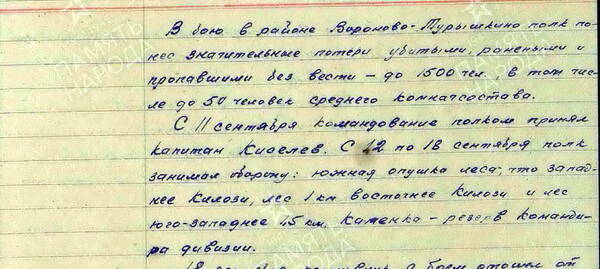 В бою в районе Вороново-Турышкино полк по-
нес значительные потери убитыми, ранеными и
пропавшими без вести – до 1500 чел., в том чис-
ле до 50 человек среднего комначсостава.
С 11 сентября командование полком принял
капитан Киселев. С 12 по 18 сентября полк
занимал оборону: южная опушка леса, что запад-
нее Килози, лес 1 км восточнее Килози и лес
юго-западнее 1,5 км Катенка – резерв команди-
ра дивизии.
18 с боем отошел от
ПАМЯТЬ НАРОДА